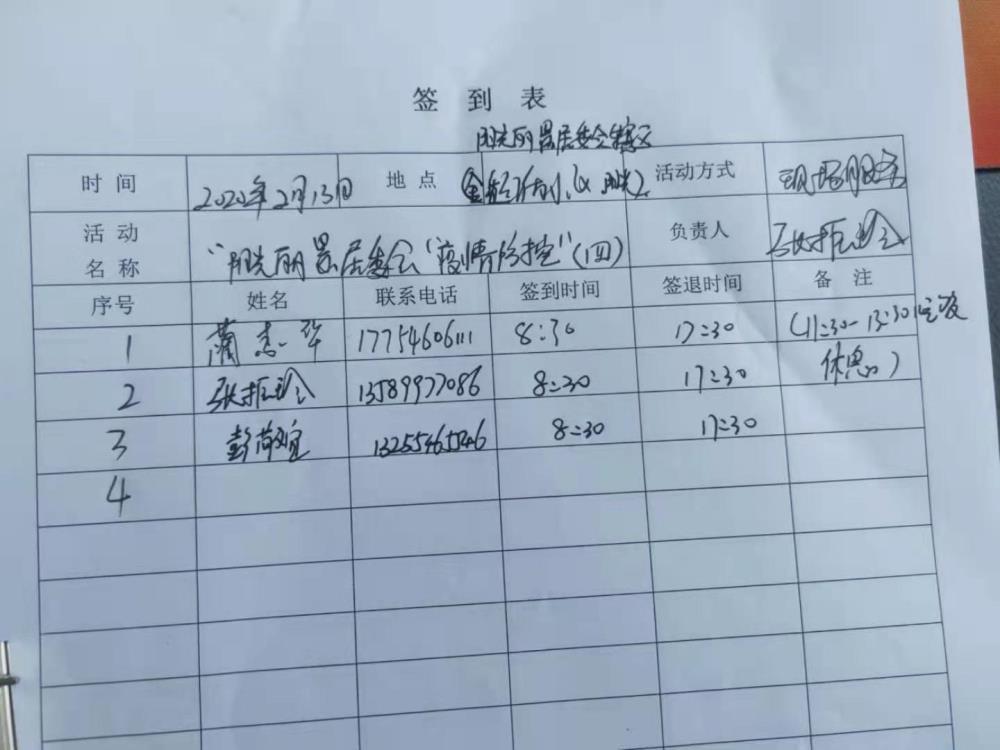 签到表
丽景居委会辖区
时间 2020年2月13日 地点 活动方式 现场服务
活动名称 丽景居委会"疫情防控"(四) 负责人 张振玲
序号 姓名 联系电话 签到时间 签退时间 备注
1 蔺杰华 17754606111 8:30 17:30 (11:30-13:30 吃饭
休息)
2 张振玲 13589977086 8:30 17:30
3 彭 13255465546 8:30 17:30
4